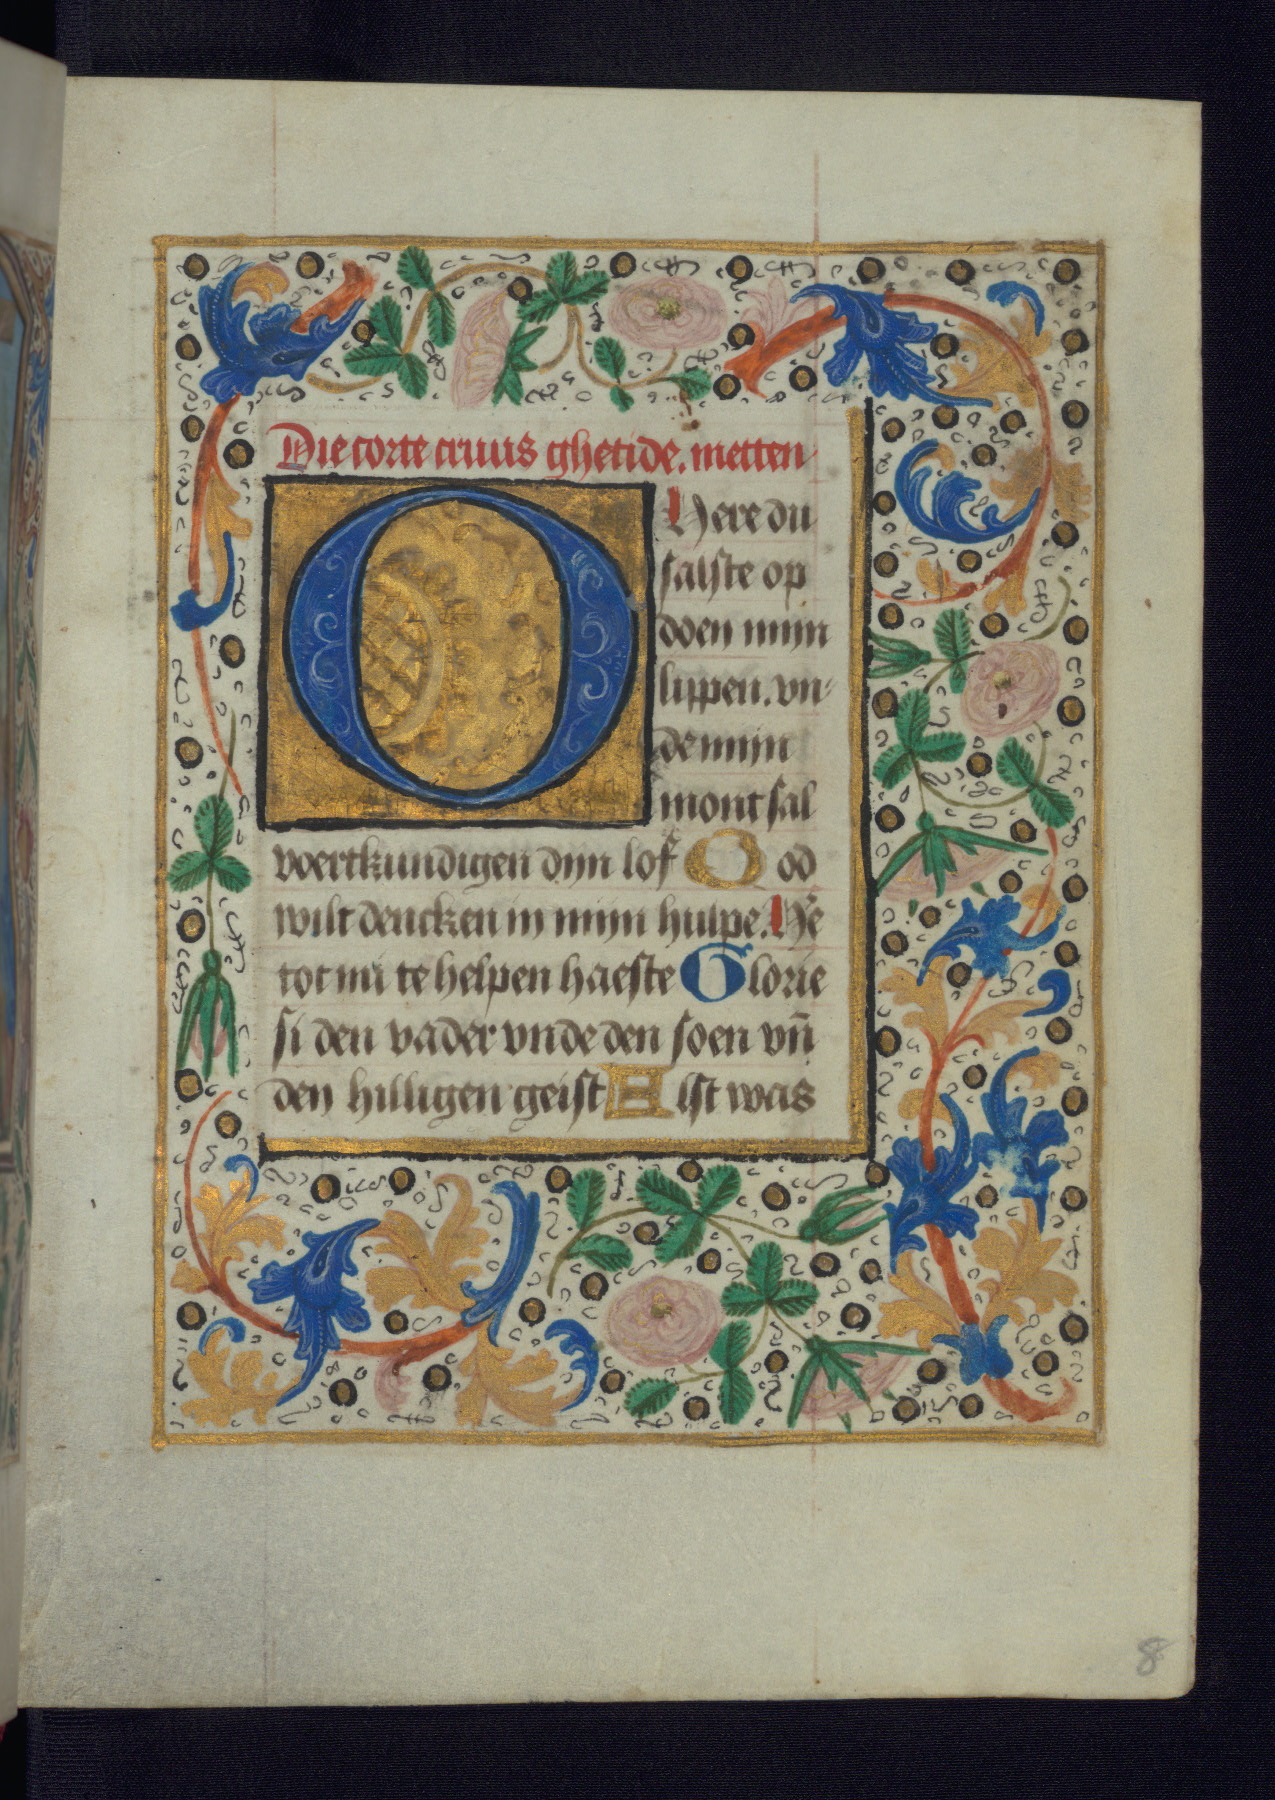 Die corte cruus ghetide. metten
O Here du
salste op
doen mijn
lippen. vn-
de mijn
mont sal
voertkundigen dijn lof God
wilt dencken in mijn hulpe. He͂
tot mi te helpen haeste Glorie
si den vader vnde den soen vn̄
den hilligen geist Alst was
8